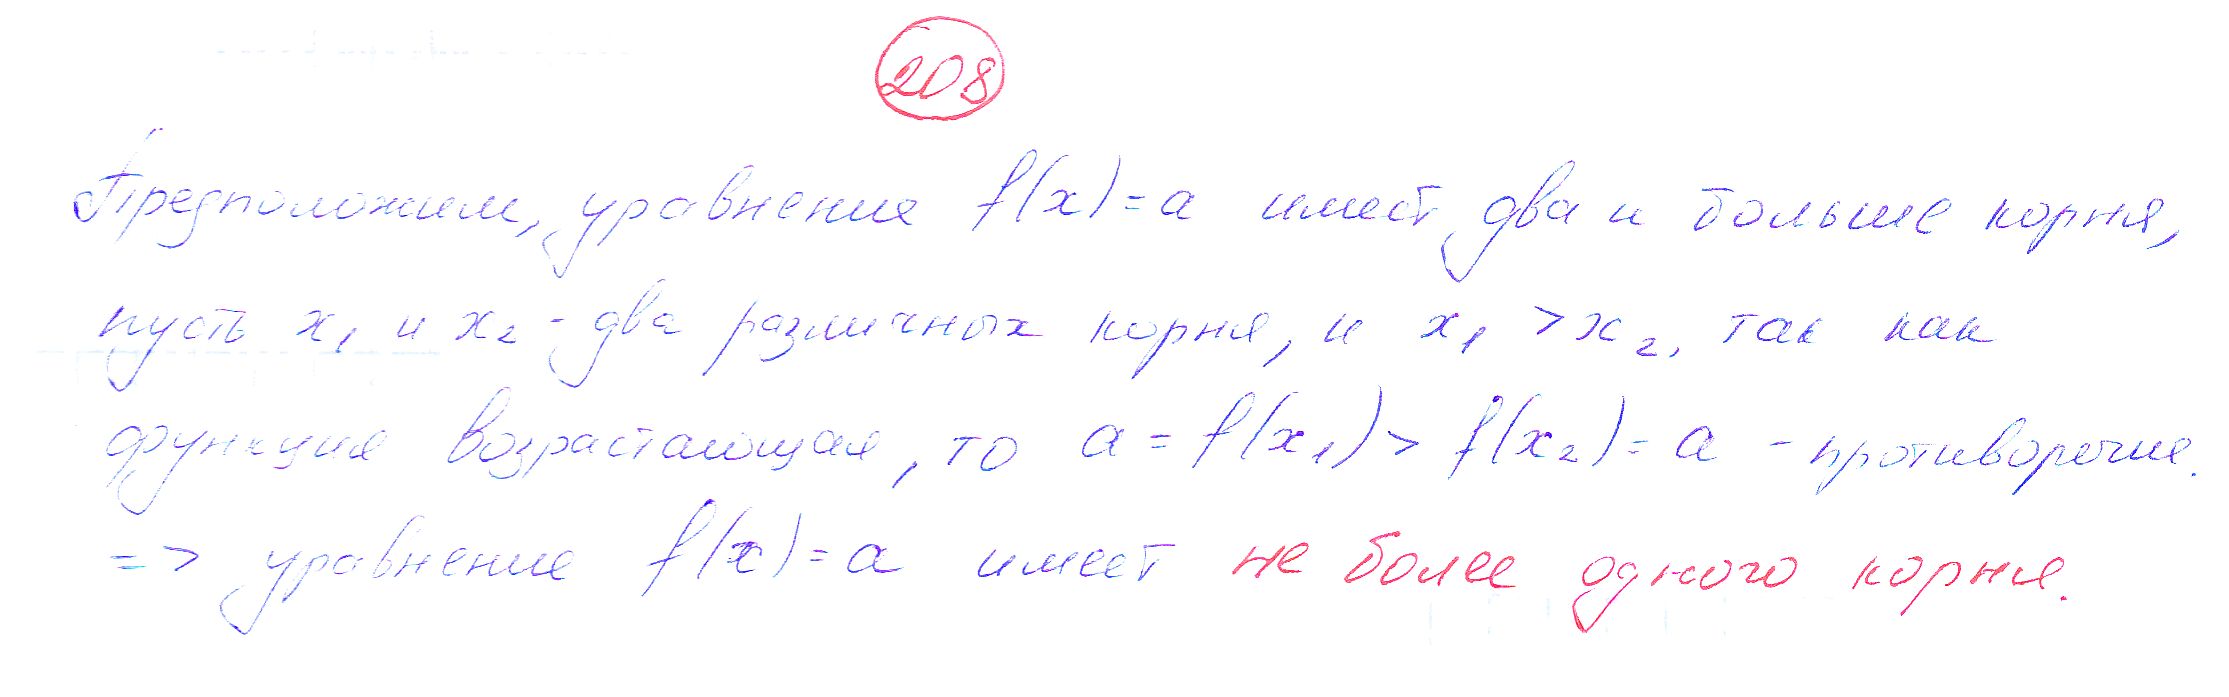 208
Предположим, уравнение f(x)=a имеет два и больше корня,
пусть x₁ и x₂ - два различных корня, и x₁ > x₂, так как
функция возрастающая, то a = f(x₁) > f(x₂) = a - противоречие.
=> уравнение f(x)=a имеет не более одного корня.